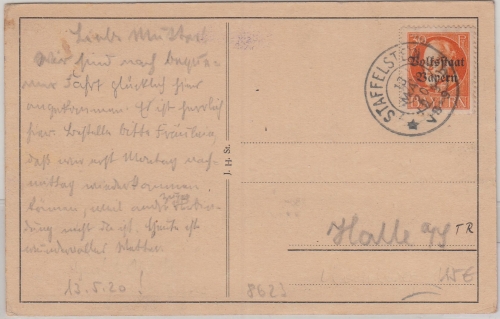 Liebe Mutter!
Wir sind nach beque-
mer Fahrt glücklich hier
angekommen. Es ist herrlich
hier. Bestelle bitte Fräulein
daß wir erst Montag nach-
mittag wiederkommen
können, weil andre
Heute ist
wundervolles Wetter.
13.5.20!
J. H. St.
Volksstaat
Bayern
STAFFELSTEIN
Halle a/S
TR
8623
15 €